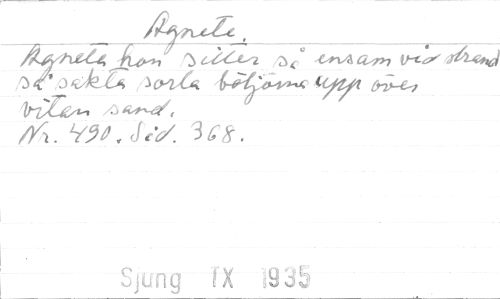 Agnete.
Agneta hon sitter så ensam vid strand
så sakta sorla böljorna upp över
vitan sand.
Nr. 490. Sid. 368.
Sjung IX 1935